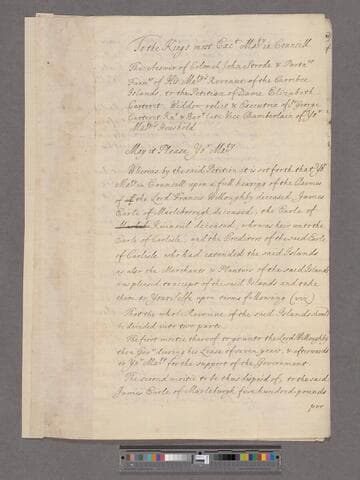 To the Kings most Exc.t Ma.ty in Councell
The Answer of Colonell John Strode & Partn.rs
Farm.rs of His Ma.ts Revenue of the Caribee
Islands, to the Petition of Dame Elizabeth
Carteret Widdow relict & Executrix of S.r George
Carteret Kn.t & Bar.t late Vice Chamberlain of Yo.r
Ma.ts Houshold
May it Please Yo.r Ma.ty
Whereas by the said Petition it is set forth that Yo.r
Ma.ty in Councell upon a full hearing of the Claimes
of the Lord Francis Willoughby deceased, James
Earle of Marleborough deceased, the Earle of
Kinnoul deceased, who was heir unto the
Earle of Carlisle, and the Creditors of the said Earle
of Carlisle who had extended the said Islands
as also the Merchants & Planters of the said Islands
was pleased to accept of the said Islands and take
them to Yourselfe upon terms following (viz.)
That the whole Revenue of the said Islands should
be divided into two parts.
The first moitie thereof to go unto the Lord Willoughby
then Gov.r during his Lease of seven years, & afterwards
to Yo.r Ma.ty for the support of the Government
The second moitie to be thus disposed of, to the said
James Earle of Marleburgh five hundred pounds
per